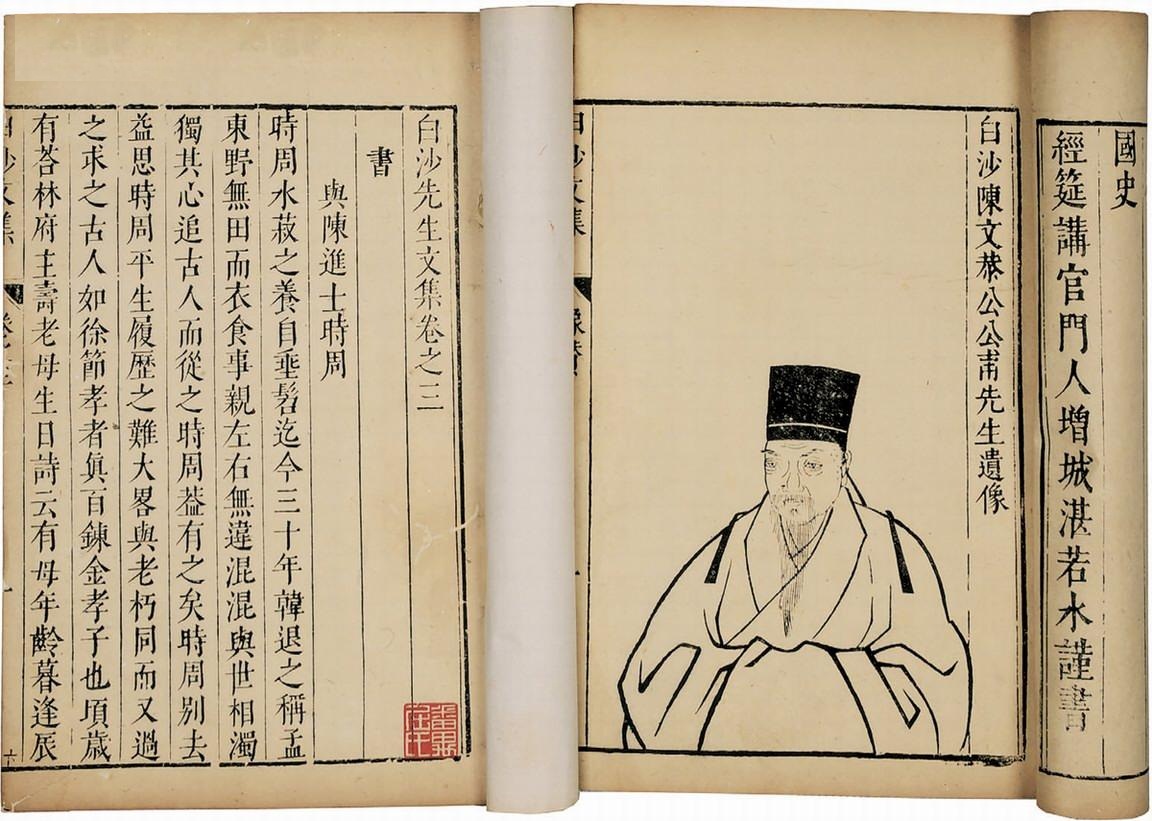 國史
經筵講官門人增城湛若水謹書
白沙陳文恭公公甫先生遺像
白沙文集
白沙先生文集卷之三
書
與陳進士時周
時周水菽之養自垂髫迄今三十年韓退之稱孟
東野無田而衣食事親左右無違混混與世相濁
獨其心追古人而從之時周葢有之矣時周別去
益思時周平生履歷之難大畧與老朽同而又過
之求之古人如徐節孝者眞百鍊金孝子也頃歲
有荅林府主壽老母生日詩云有母年齡暮逢辰
白沙文集 卷之三 一